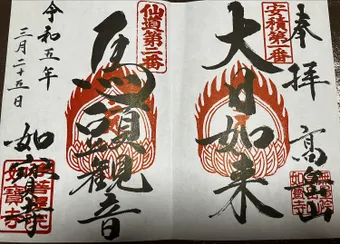 奉拝
安積第一番
大日如来
高嶽山
仙道第三番
馬頭観音
令和五年
三月二十五日
如寳寺
如寶寺